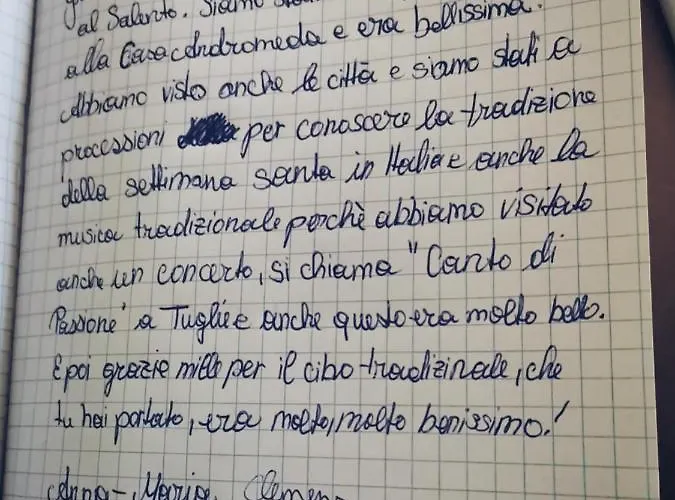 al Salento. Siamo
alla Casa Andromeda e era bellissima.
Abbiamo visto anche le città e siamo stati a
processioni per conoscere la tradizione
della settimana santa in Italia e anche la
musica tradizionale perchè abbiamo visitato
anche un concerto, si chiama "Canto di
Passione" a Tuglie e anche questo era molto bello.
E poi grazie mille per il cibo tradizinale, che
tu hai portato, era molto, molto benissimo!
Anna-Maria, Clemen-